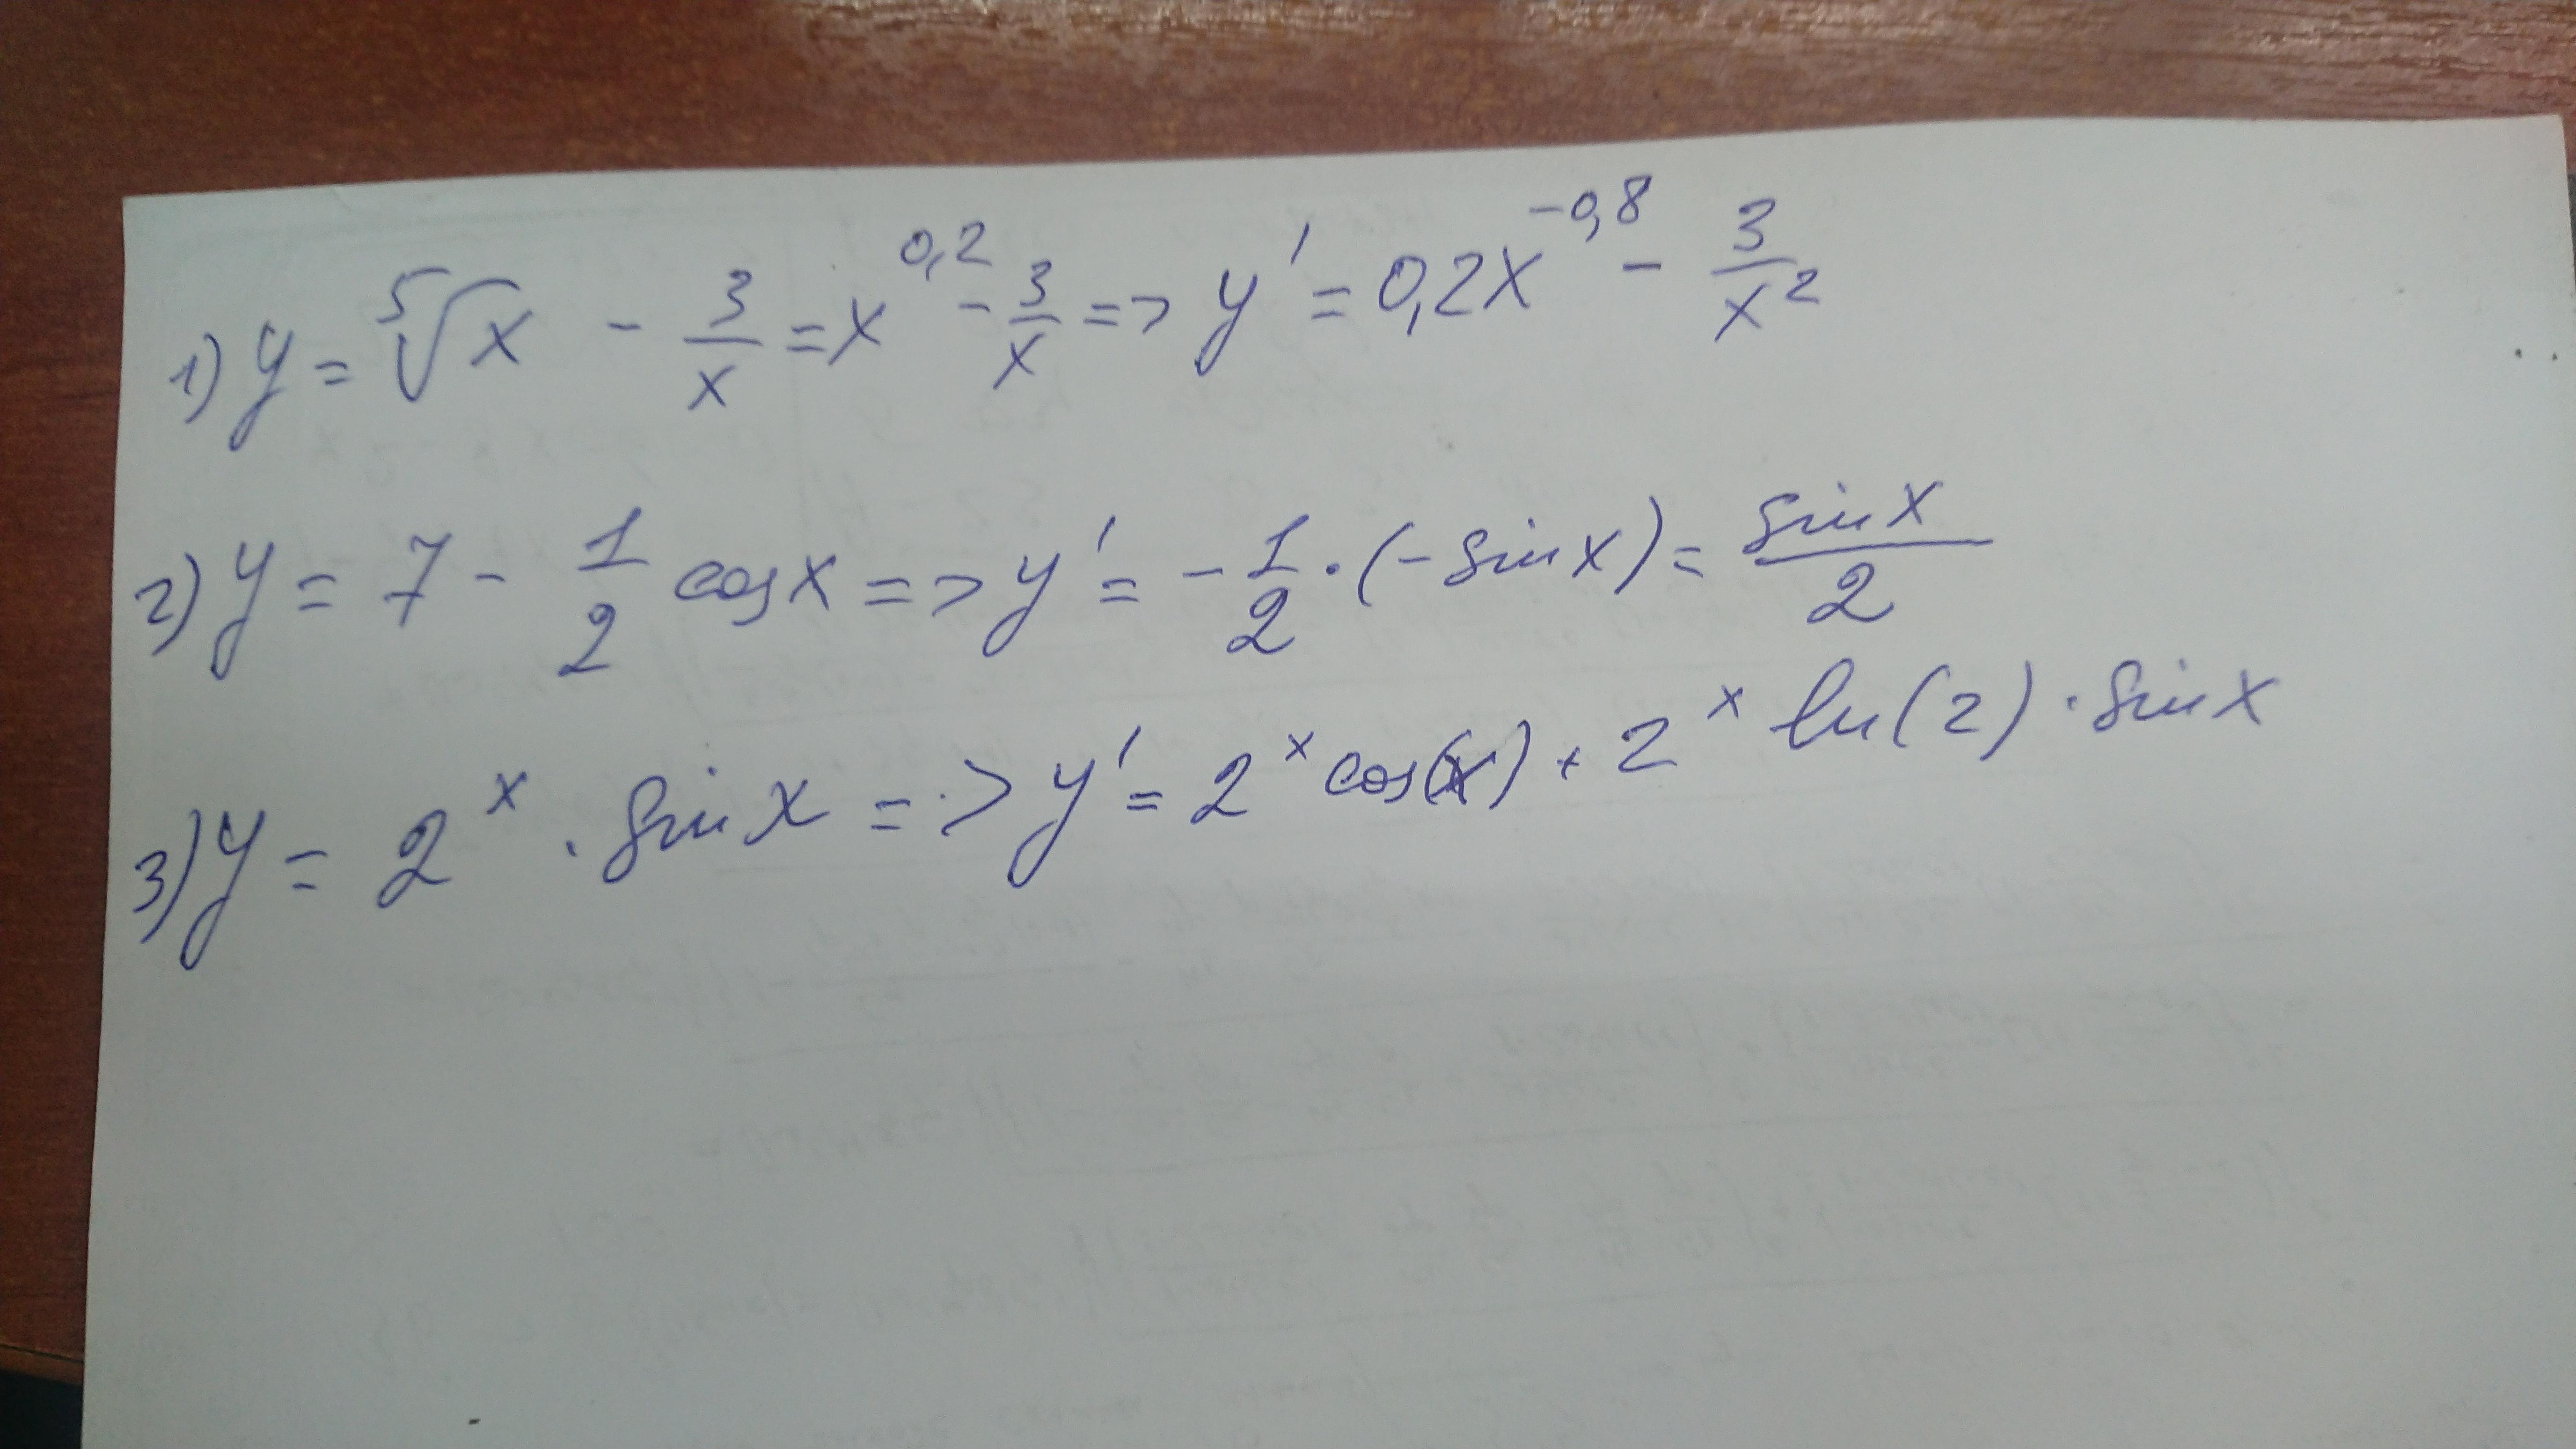 1) y = ⁵√x - 3/x = x^0,2 - 3/x => y' = 0,2x^-0,8 - 3/x²
2) y = 7 - 1/2 cosx => y' = -1/2 · (-sinx) = sinx/2
3) y = 2^x · sinx => y' = 2^x cos(x) + 2^x ln(2) · sinx